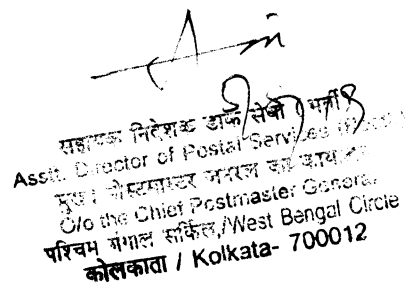 सहायक निदेशक डाक सेवा (भर्ती)
Asstt. Director of Postal Services
मुख्य पोस्टमास्टर जनरल का कार्यालय
O/o the Chief Postmaster General
पश्चिम बंगाल सर्किल,/West Bengal Circle
कोलकाता / Kolkata- 700012